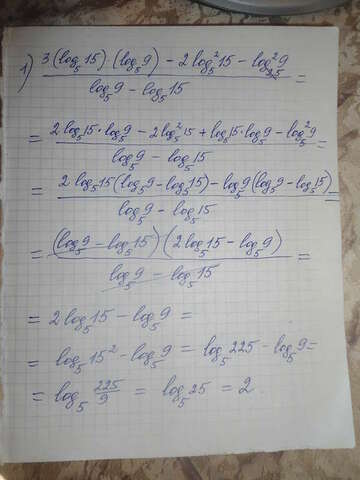 1) (3(log₅15)(log₅9) − 2log₅²15 − log₅²9) / (log₅9 − log₅15) =
= (2log₅15·log₅9 − 2log₅²15 + log₅15·log₅9 − log₅²9) / (log₅9 − log₅15) =
= (2log₅15(log₅9 − log₅15) − log₅9(log₅9 − log₅15)) / (log₅9 − log₅15) =
= ((log₅9 − log₅15)(2log₅15 − log₅9)) / (log₅9 − log₅15) =
= 2log₅15 − log₅9 =
= log₅15² − log₅9 = log₅225 − log₅9 =
= log₅ 225/9 = log₅25 = 2.